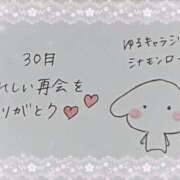 30月
しい再会を
りがとう
ゆるキャラ
シナモンロー